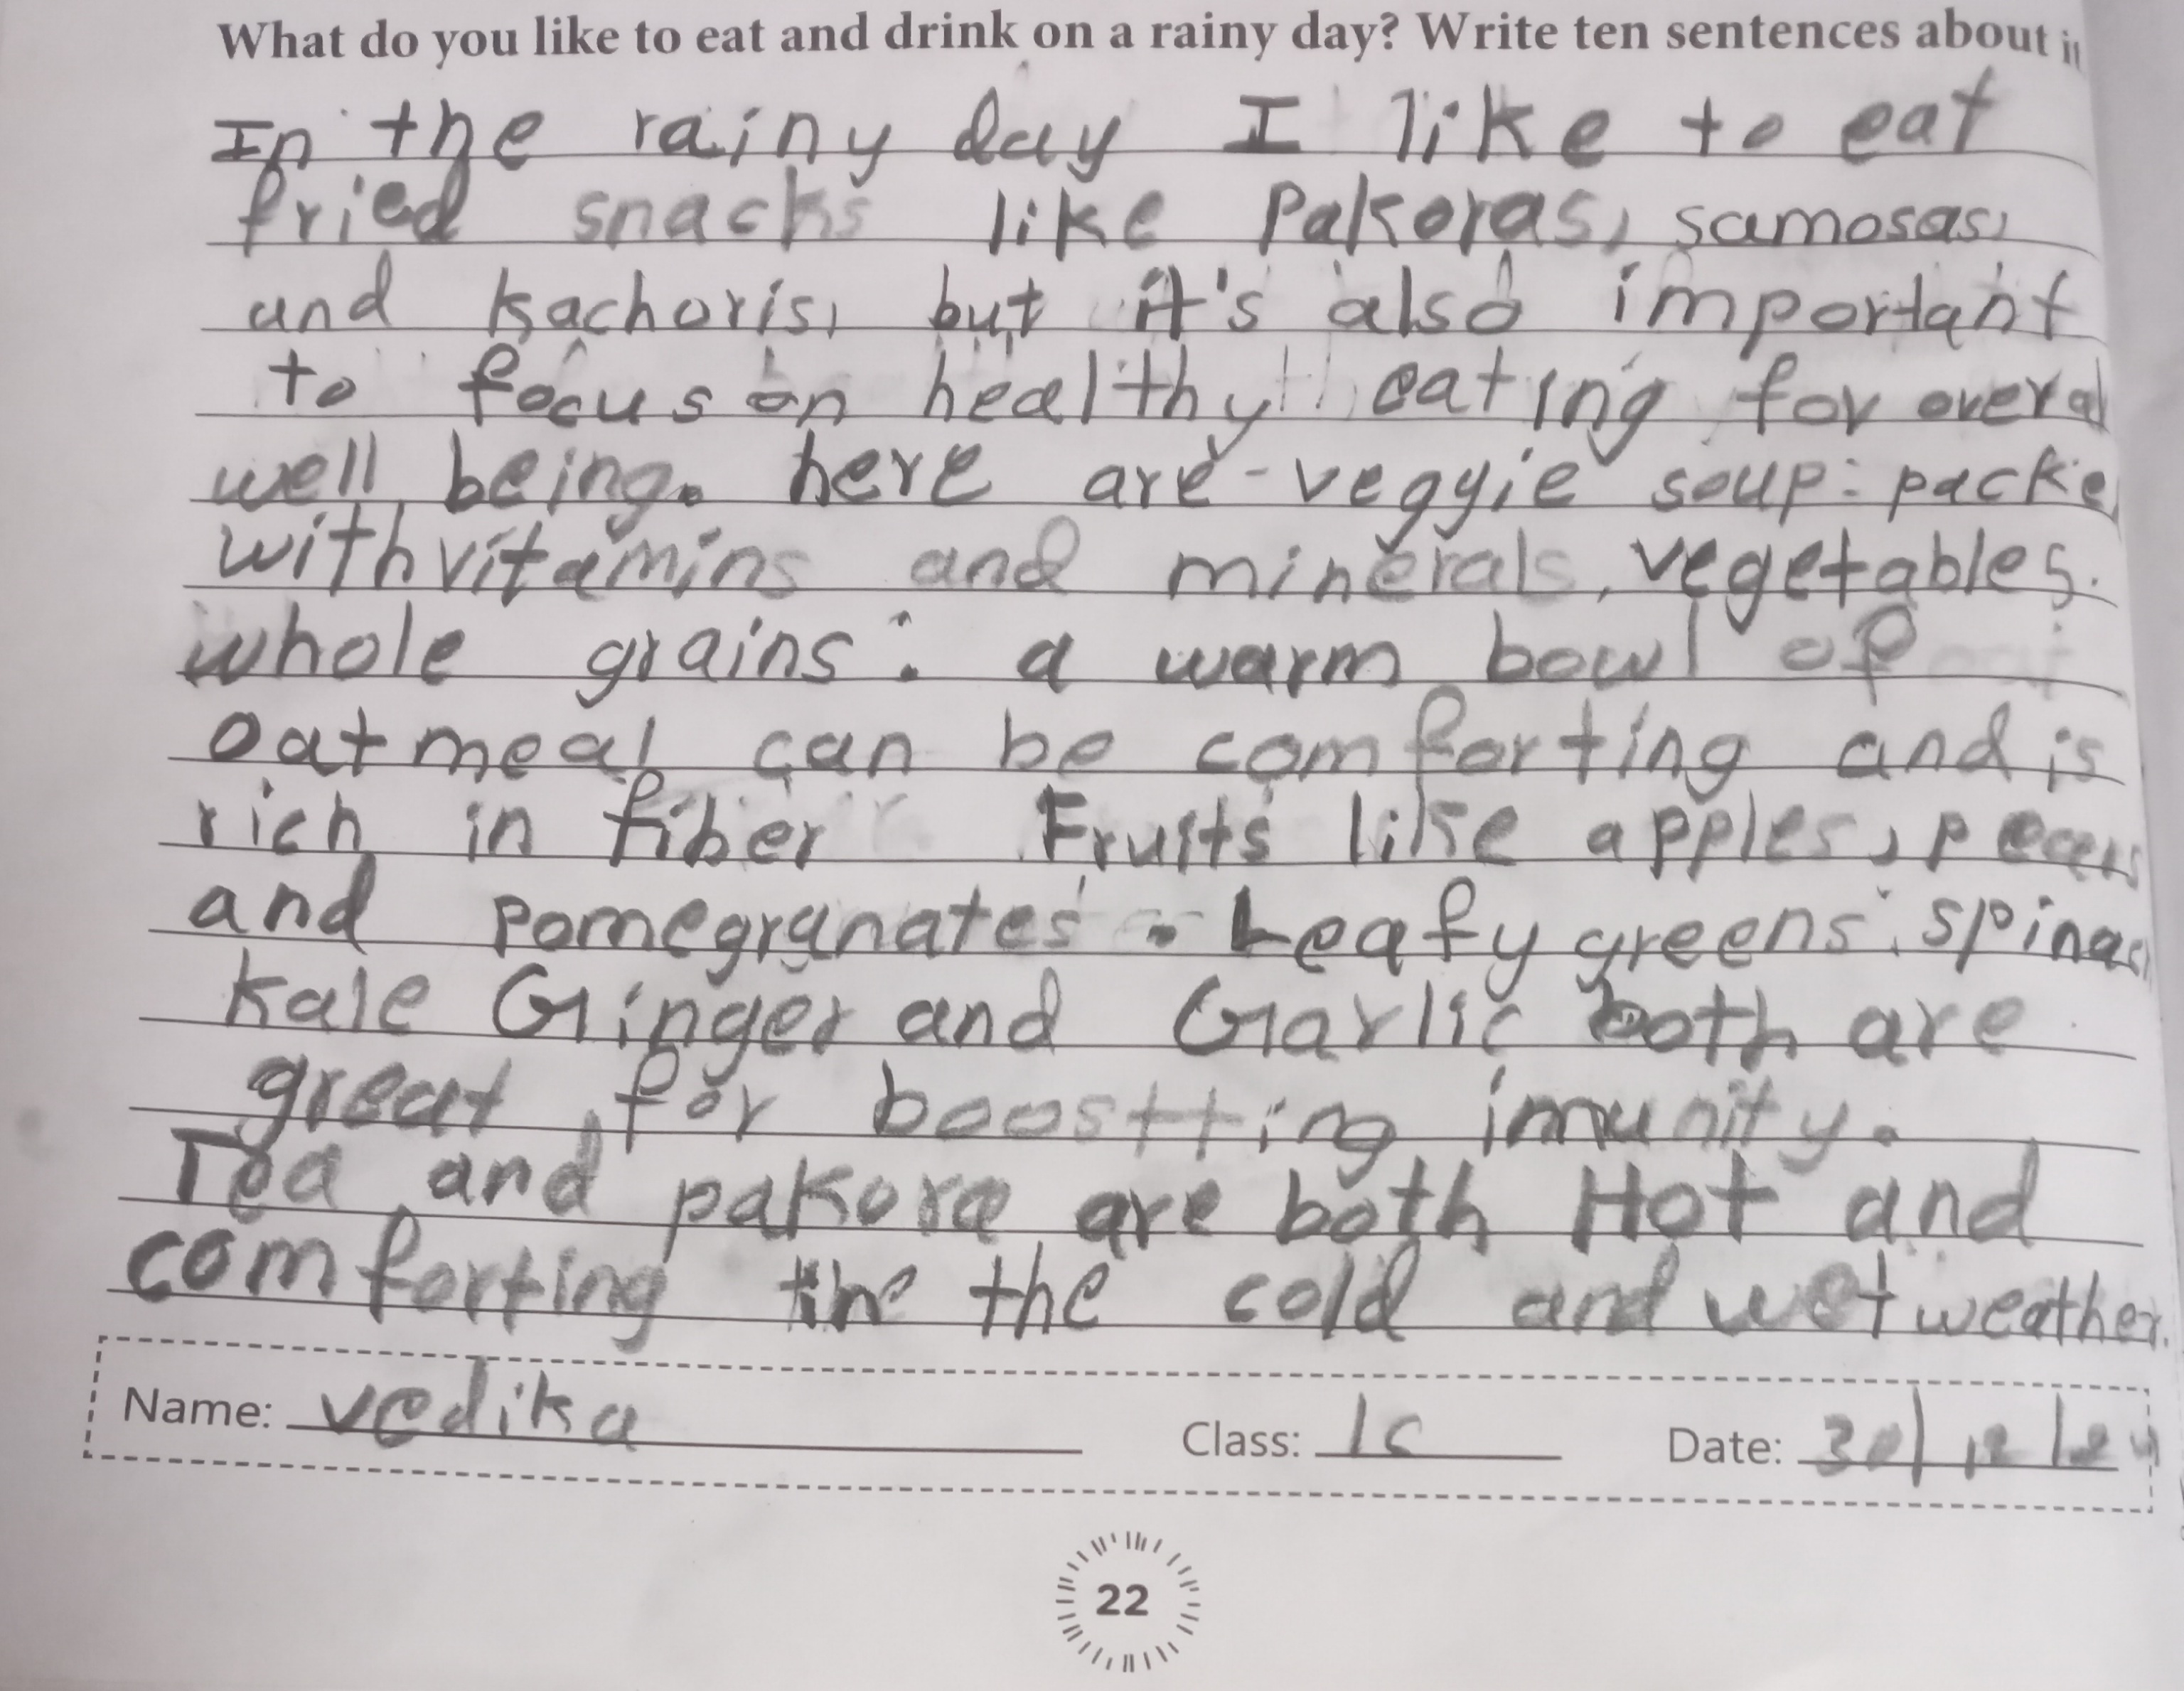 What do you like to eat and drink on a rainy day? Write ten sentences about
In the rainy day I like to eat
fried snacks like Pakoras, samosas,
and kachoris, but it's also important
to focus on healthy eating for overal
well being. here are - veggie soup: packe
with vitamins and minerals, vegetables.
whole grains: a warm bowl of
oatmeal can be comforting and is
rich in fiber Fruits like apples, pears
and pomegranates. Leafy greens: spinac
kale Ginger and Garlic both are
great for boostting imunity.
Tea and pakora are both Hot and
comforting the the cold and wet weather.
Name: vedika Class: 1c Date: 30/12/24
22